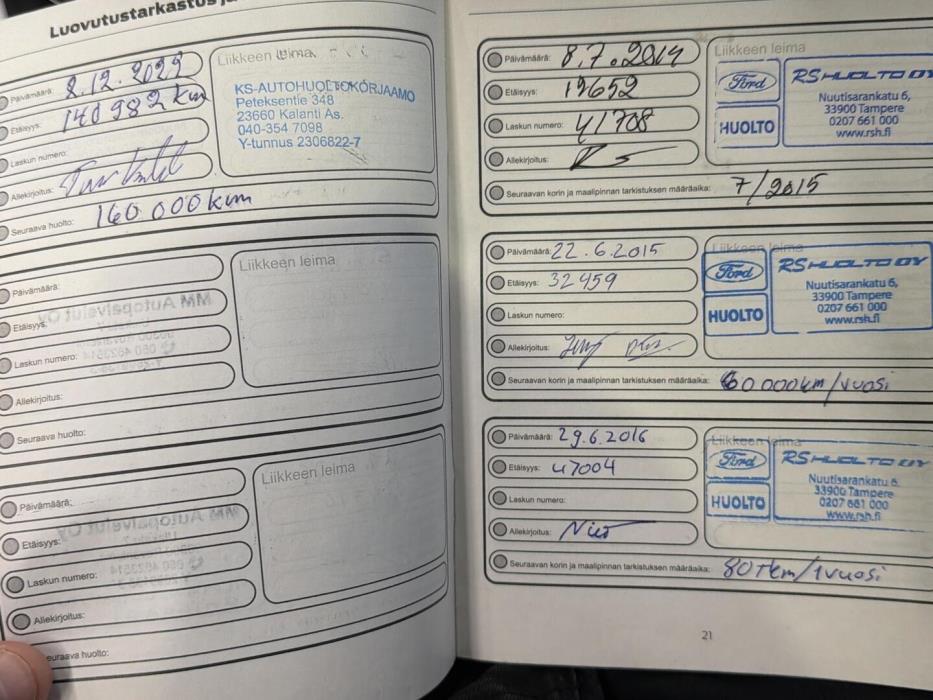 Luovutustarkastus ja
Päivämäärä: 2.12.2022
Etäisyys: 140 982 km
Laskun numero:
Allekirjoitus:
Seuraava huolto: 160 000 km
Liikkeen leima
KS-AUTOHUOLTOKORJAAMO
Peteksentie 348
23660 Kalanti As.
040-354 7098
Y-tunnus 2306822-7
Päivämäärä:
Etäisyys:
Laskun numero:
Allekirjoitus:
Seuraava huolto:
Liikkeen leima
MM Autopalvelut Oy
Päivämäärä:
Etäisyys:
Laskun numero:
Allekirjoitus:
euraava huolto:
Liikkeen leima
MM Autopalvelut Oy
Päivämäärä: 8.7.2014
Etäisyys: 19652
Laskun numero: 41708
Allekirjoitus:
Seuraavan korin ja maalipinnan tarkistuksen määräaika: 7/2015
Liikkeen leima
Ford
HUOLTO
RS HUOLTO OY
Nuutisarankatu 6,
33900 Tampere
0207 661 000
www.rsh.fi
Päivämäärä: 22.6.2015
Etäisyys: 32459
Laskun numero:
Allekirjoitus:
Seuraavan korin ja maalipinnan tarkistuksen määräaika: 60 000km/vuosi
Liikkeen leima
Ford
HUOLTO
RS HUOLTO OY
Nuutisarankatu 6,
33900 Tampere
0207 661 000
www.rsh.fi
Päivämäärä: 29.6.2016
Etäisyys: 47004
Laskun numero:
Allekirjoitus:
Seuraavan korin ja maalipinnan tarkistuksen määräaika: 80tkm/1vuosi
Liikkeen leima
Ford
HUOLTO
RS HUOLTO OY
Nuutisarankatu 6.
33900 Tampere
0207 661 000
www.rsh.fi
21